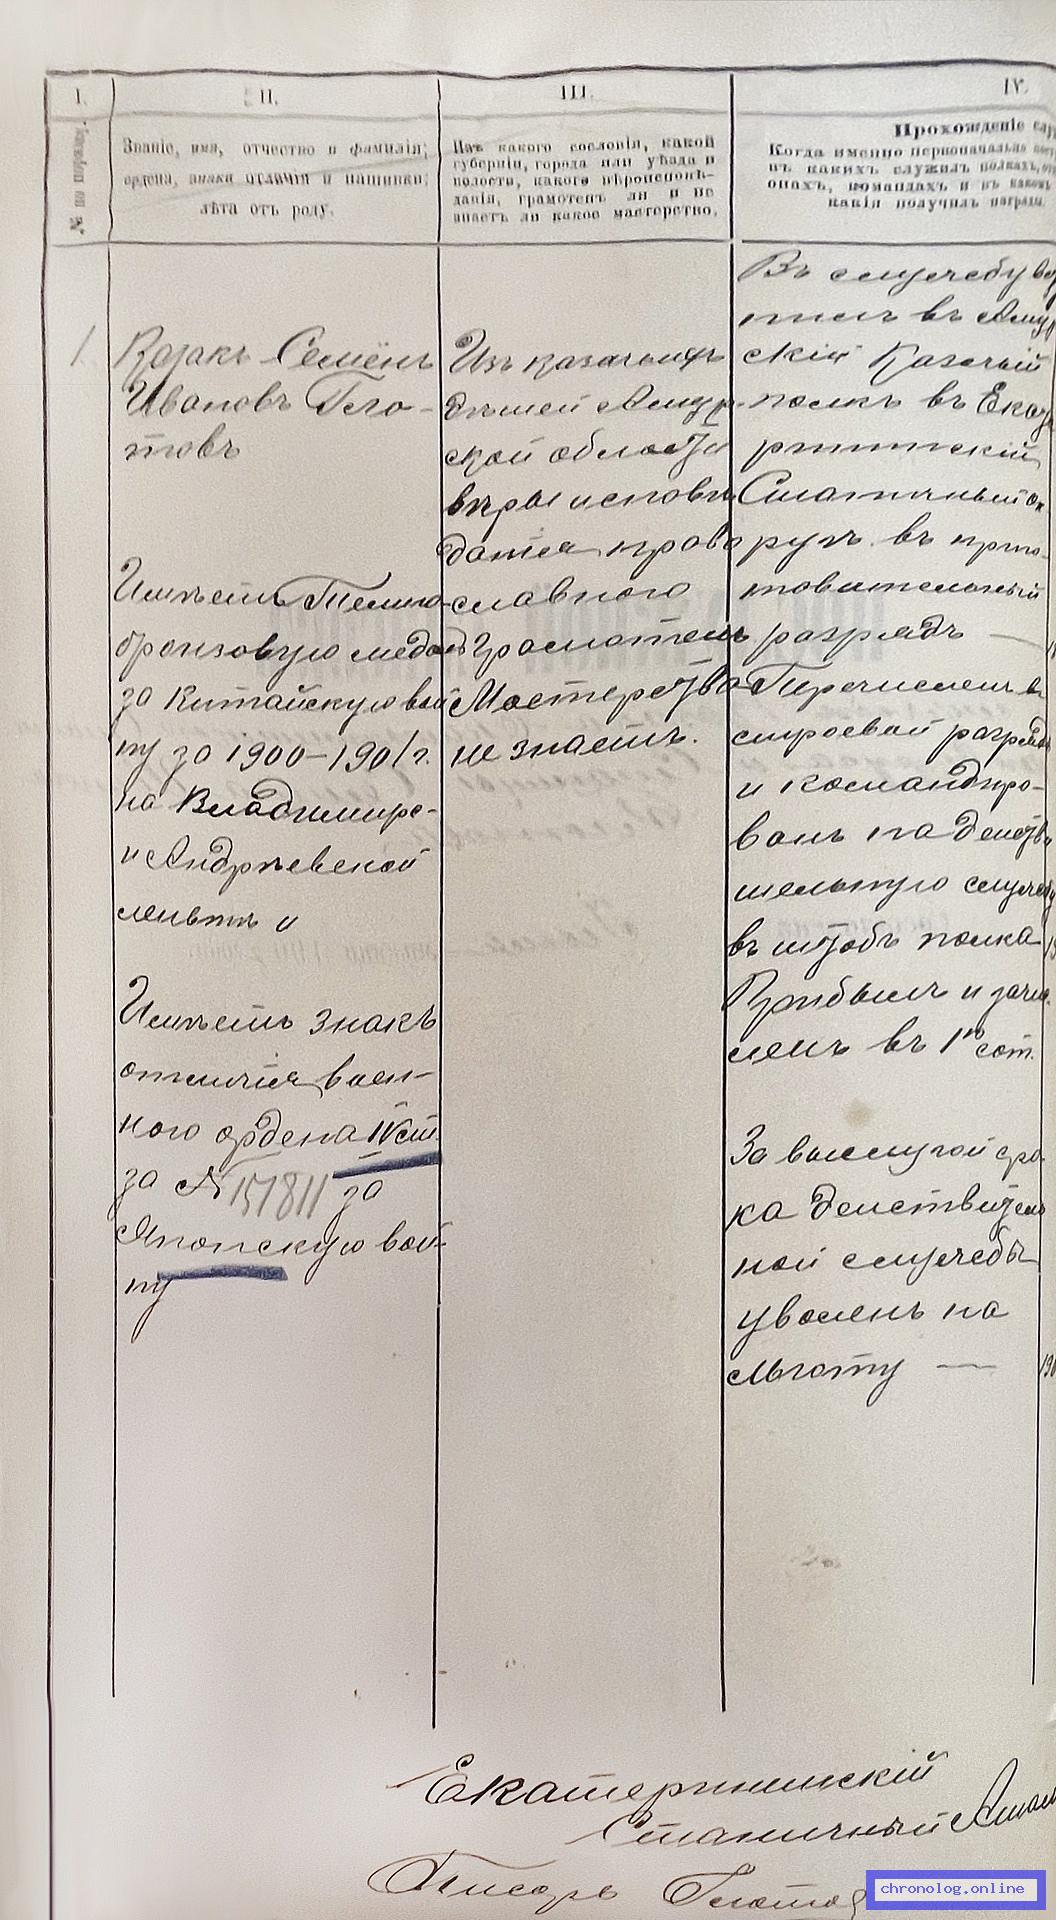 I.
II.
III.
IV.
№ по порядку.
Званіе, имя, отчество и фамилія;
ордена, знаки отличія и нашивки;
лѣта отъ роду.
Изъ какого сословія, какой
губерніи, города или уѣзда и
волости, какого вѣроисповѣ-
данія, грамотенъ ли и не
знаетъ ли какое мастерство.
Прохожденіе
Когда именно первоначально
въ какихъ служилъ полкахъ,
командахъ и въ какомъ
какія получилъ награды.
1.
Козакъ Семёнъ
Ивановъ Гло-
товъ
Имѣетъ Темно-
бронзовую медаль
за Китайскую вой
ну за 1900–1901 г.
на Владимирс-
и Андрѣевской
леньтѣ и
Имѣетъ знакъ
отличія воен-
ного ордена IV ст.
за № 157811 за
Японскую вой-
ну
Изъ казачьихъ
дѣтей Амур-
ской области
вѣры исповѣ
данія право
славного
Грамотенъ
Мастерства
не знаетъ.
Въ службу
въ Аму
скій Казачій
полкъ въ Ека
Станичный
въ приго-
товительный
разрядъ —
Перечисленъ в
строевой разрядъ
и командиро-
ванъ на действи
тельную службу
въ штабъ полка
Прибылъ и зачи
сленъ въ 1ю сот.
За выслугой сро-
ка действитель
ной службы
уволенъ на
льготу —
Екатерининскій
Станичный Атаман
Писарь Глотов
chronolog.online